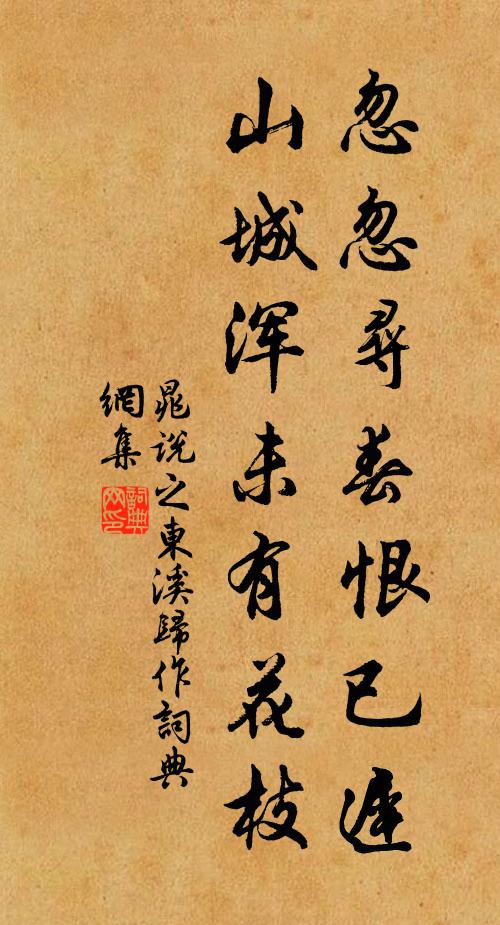 忽忽尋春恨已遲
山城浑未有花枝
晁說之東溪歸作詞典
網集
詞典網印